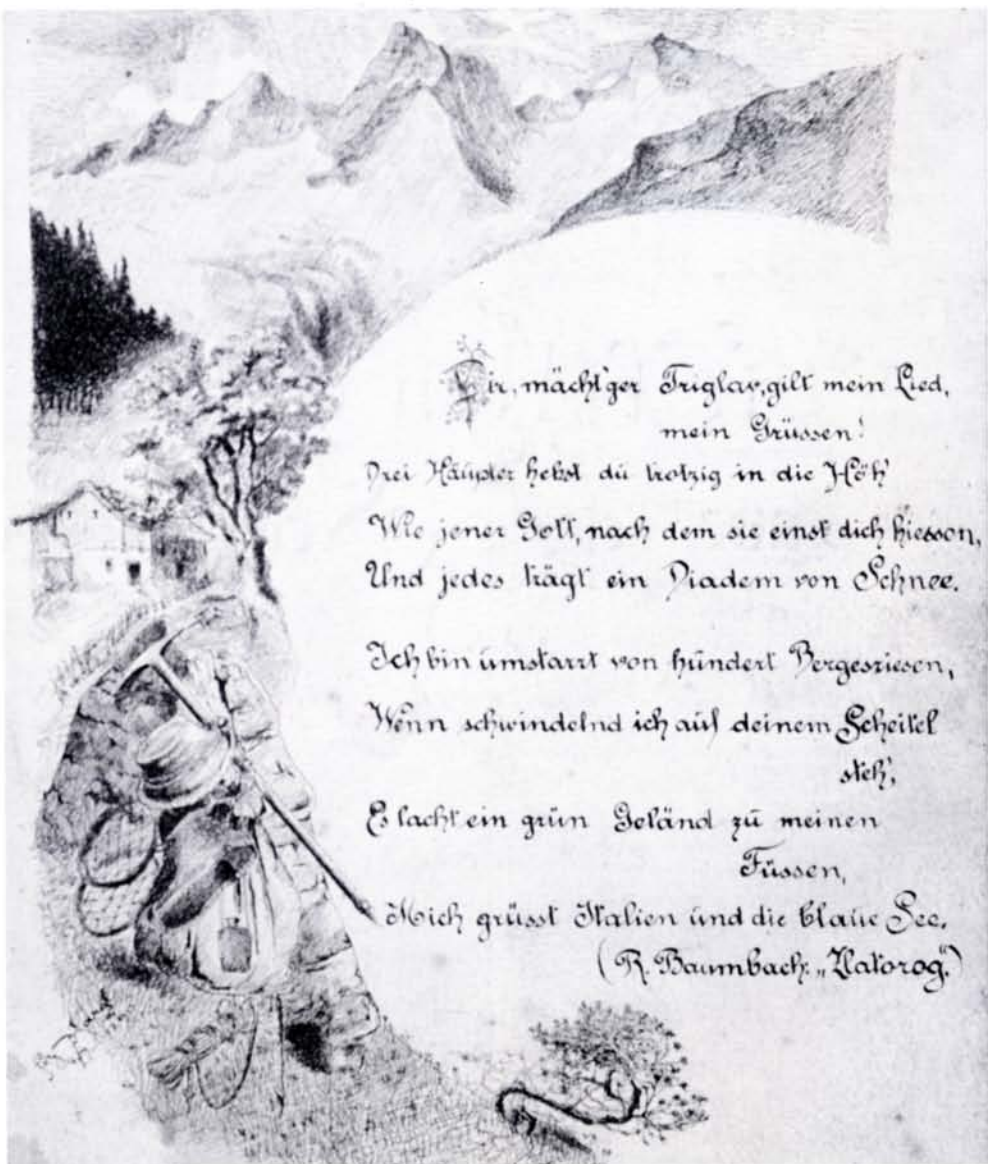 Dir, mächt'ger Triglav, gilt mein Lied,
mein Grüssen!
Drei Häupter hebst du trotzig in die Höh'
Wie jener Gott, nach dem sie einst dich hiessen,
Und jedes trägt ein Diadem von Schnee.
Ich bin umstarrt von hundert Bergesriesen,
Wenn schwindelnd ich auf deinem Scheitel
steh',
Es lacht ein grün Geländ zu meinen
Füssen,
Mich grüsst Italien und die blaue See.
(R. Baumbach: „Zlatorog“)